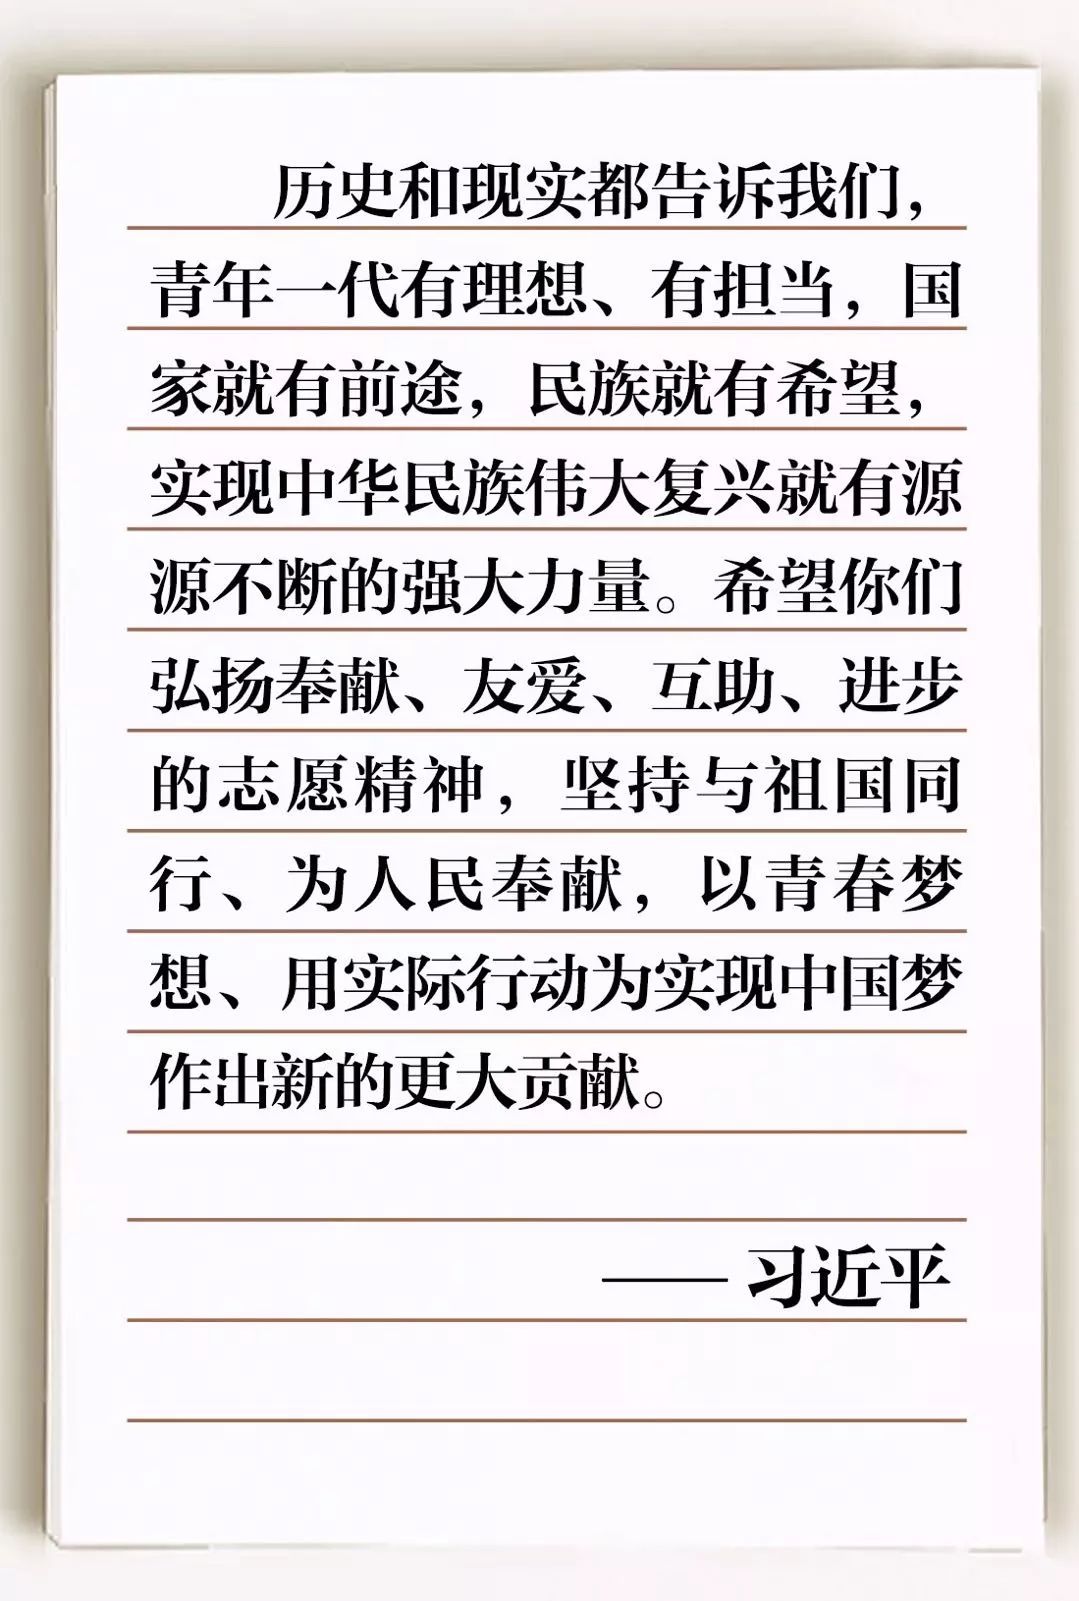 历史和现实都告诉我们，
青年一代有理想、有担当，国
家就有前途，民族就有希望，
实现中华民族伟大复兴就有源
源不断的强大力量。希望你们
弘扬奉献、友爱、互助、进步
的志愿精神，坚持与祖国同
行、为人民奉献，以青春梦
想、用实际行动为实现中国梦
作出新的更大贡献。
—— 习近平